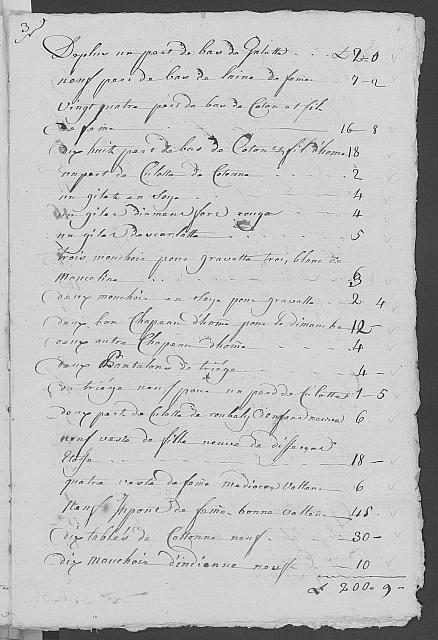 3
De plus un pert de bas de Galette . . . £ 2 . 0
neuf pere de bas de laine de fame . . . 7 - 2
Vingt quatre pert de bas de Coton et fil
de fame . . . 16 - 8
dix huit pert de bas de Coton & fil d'home 18
un pert de Culotta de Cotonne . . . 2
un gilet en soye . . . 4
un gilet diamant force rouga . . . 4
un gilet d'escarlatte . . . 5
trois mouchoir pour gravatta trei, blanc de
Mancoline . . . 6
deux mouchoir en soye pour gravatta . . . 2 4
deux bon Chapeau d'home pour le dimanche 12
deux autre Chapeau d'home . . . 4
deux Pantalons de triége . . . 4 -
du triége neuf pour un perd de Culottes 1 - 5
deux pert de Culotta de d'enfans neuve 6
neuf vesta de filla neuve de differgas
Etoffe . . . 18 -
quatra vesta de fame mediocre vallon . . . 6
Neuf Jupons de fame bonne vallon . . . 45 .
dix tables de Cottonne neuf . . . 30 -
dix mouchoir d'indienne neuf . . . 10
£ 200 . 9 -